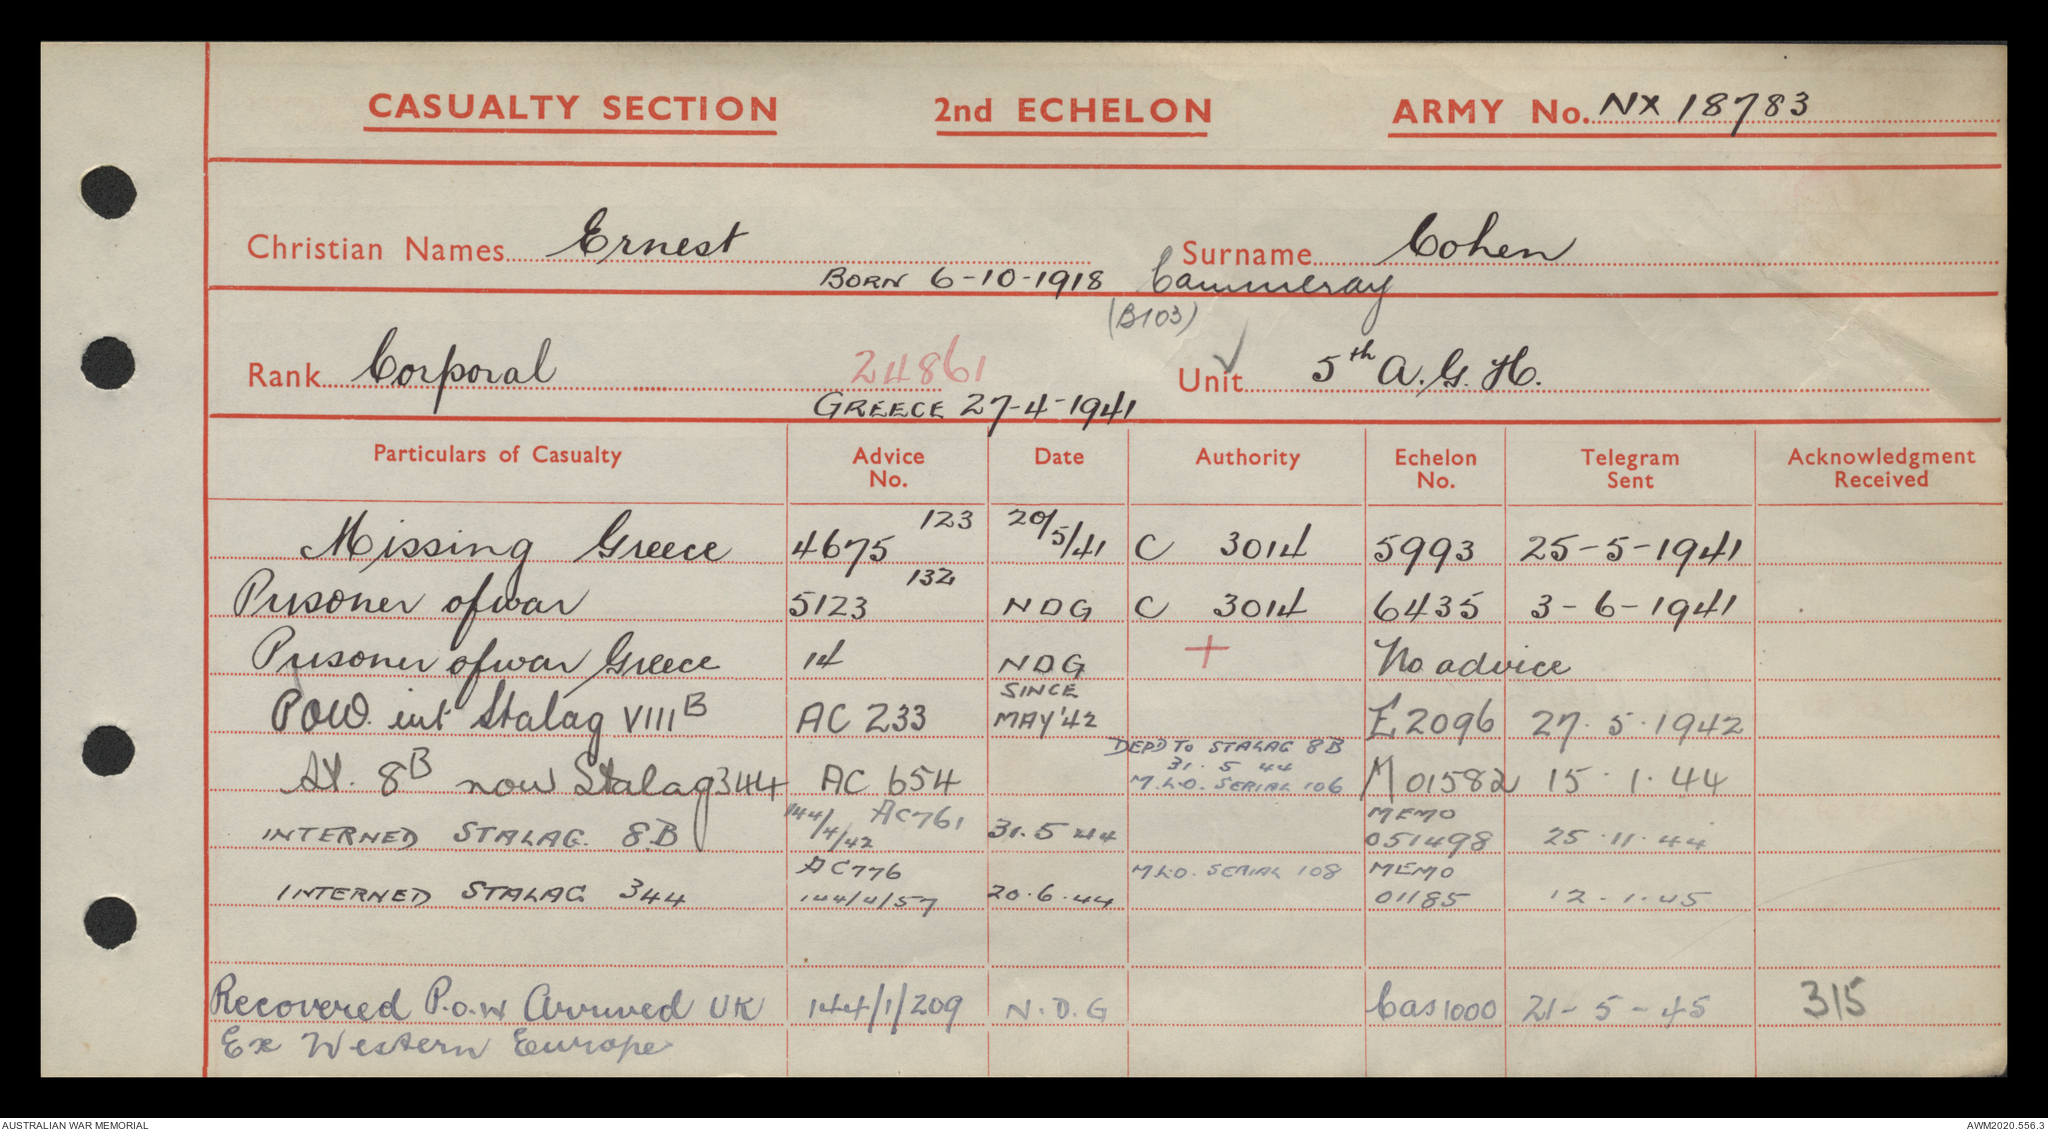 CASUALTY SECTION 2nd ECHELON ARMY No. NX 18783
Christian Names Ernest Surname Cohen
BORN 6-10-1918 Cammeray
(B103)
Rank Corporal 24861 Unit 5th A.G.H.
GREECE 27-4-1941
Particulars of Casualty Advice No. Date Authority Echelon No. Telegram Sent Acknowledgment Received
Missing Greece 4675 123 20/5/41 C 3014 5993 25-5-1941
Prisoner of war 5123 132 NDG C 3014 6435 3-6-1941
Prisoner of war Greece 14 NDG + No advice
POW. int Stalag VIII B AC 233 SINCE MAY '42 E2096 27.5.1942
DEPD TO STALAG 8B
31.5 44
M.L.O. SERIAL 106
St. 8B now Stalag 344 AC 654 M01582 15.1.44
INTERNED STALAG. 8.B 144/4/42 AC761 31.5.44 MEMO 051498 25.11.44
INTERNED STALAG 344 AC776 144/4/57 20.6.44 M.L.O. SERIAL 108 MEMO 01185 12.1.45
Recovered P.o.w Arrived UK 144/1/209 N.D.G Cas1000 21-5-45 315
Ex Western Europe
AUSTRALIAN WAR MEMORIAL AWM2020.556.3